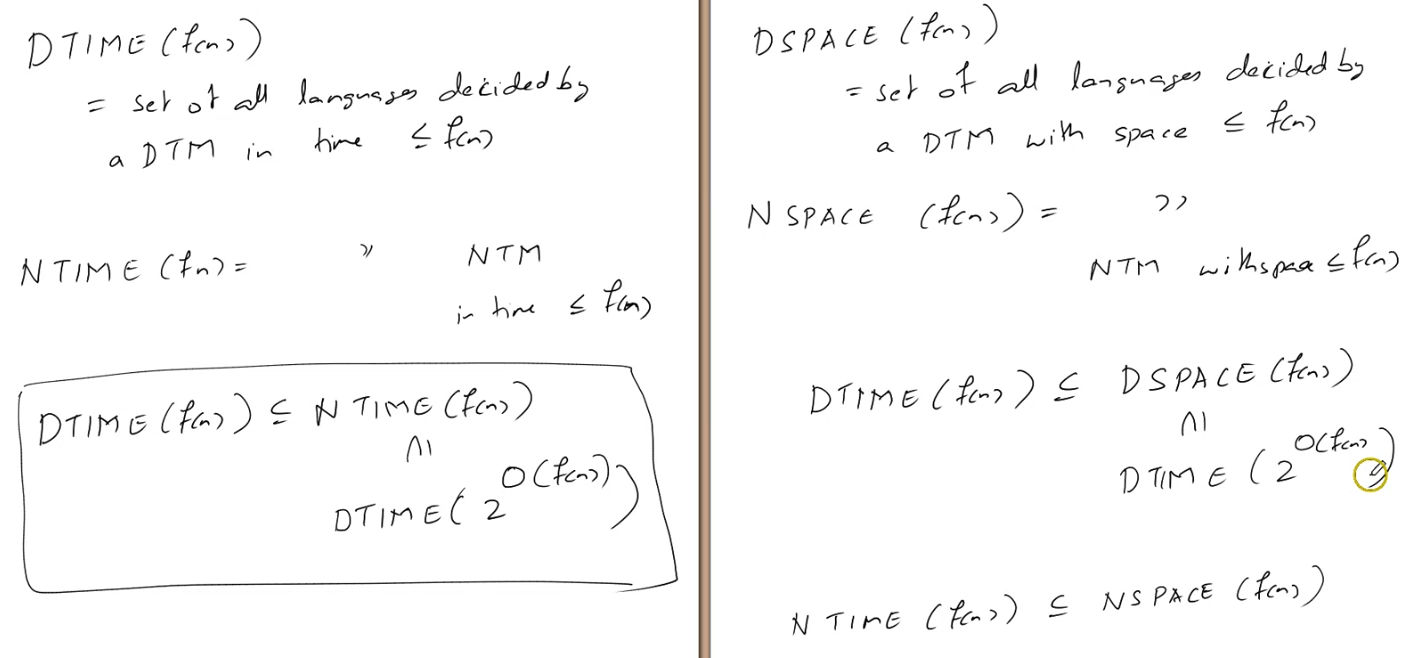 DTIME (f(n))
= set of all languages decided by
a DTM in time ≤ f(n)
NTIME (f(n) = " NTM
in time ≤ f(n)
DTIME (f(n)) ⊆ NTIME (f(n))
∩|
DTIME ( 2^O(f(n)) )
DSPACE (f(n))
= set of all languages decided by
a DTM with space ≤ f(n)
NSPACE (f(n)) = "
NTM with space ≤ f(n)
DTIME (f(n)) ⊆ DSPACE (f(n))
∩|
DTIME ( 2^O(f(n)) )
NTIME (f(n)) ⊆ NSPACE (f(n))